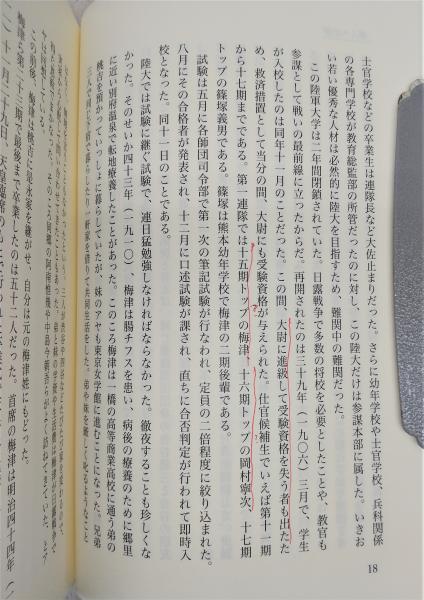 士官学校などの卒業生は連隊長など大佐止まりだった。さらに幼年学校や士官学校、兵科関係
の各専門学校が教育総監部の所管だったのに対し、この陸大だけは参謀本部に属した。いきお
い若い優秀な人材は必然的に陸大を目指したため、難関中の難関だった。
この陸軍大学は二年間閉鎖されていた。日露戦争で多数の将校を必要としたことや、教官も
参謀として戦いの最前線に立ったからだ。再開されたのは三十九年（一九〇六）三月で、学生
が入校したのは同年十一月のことだった。この間、大尉に進級して受験資格を失う者も出たた
め、救済措置として当分の間、大尉にも受験資格が与えられた。士官候補生でいえば第十一期
から十七期までである。第一連隊では十五期トップの梅津、十六期トップの岡村寧次、十七期
トップの篠塚義男である。篠塚は熊本幼年学校で梅津の二期後輩である。
試験は五月に各師団司令部で第一次の筆記試験が行なわれ、定員の二倍程度に絞り込まれた。
八月にその合格者が発表され、十二月に口述試験が課され、直ちに合否判定が行われて即時入
校となった。同十一日のことである。
陸大では試験に継ぐ試験で、連日猛勉強しなければならなかった。徹夜することも珍しくな
かった。そのせいか四十三年（一九一〇）、梅津は腸チフスを患い、病後の療養のために郷里
に近い別府温泉で転地療養したことがあった。このころ梅津は一橋の高等商業学校に通う弟の
桃吉を預かっていっしょに暮らしていたが、妹のアヤも東京女学館に進むことになった。兄弟
この前後、梅津は桃吉に是永家を継がせ、自分は元の梅津姓にもどった。
梅津ら第二十三期で最後まで卒業したのは五十二人だった。首席の梅津は明治四十四年（一
18